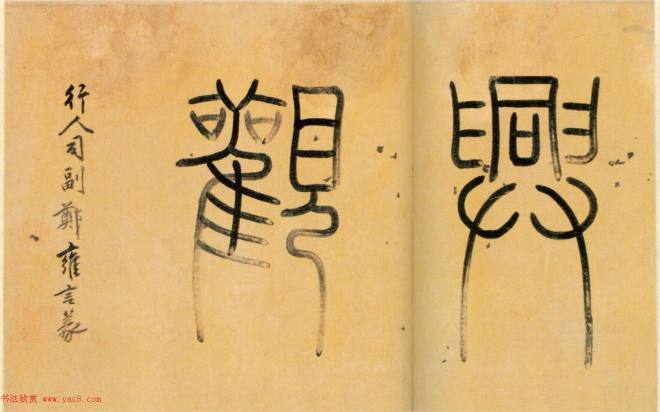 興觀
行人司副鄭雍言篆
书法欣赏
www.yac8.com